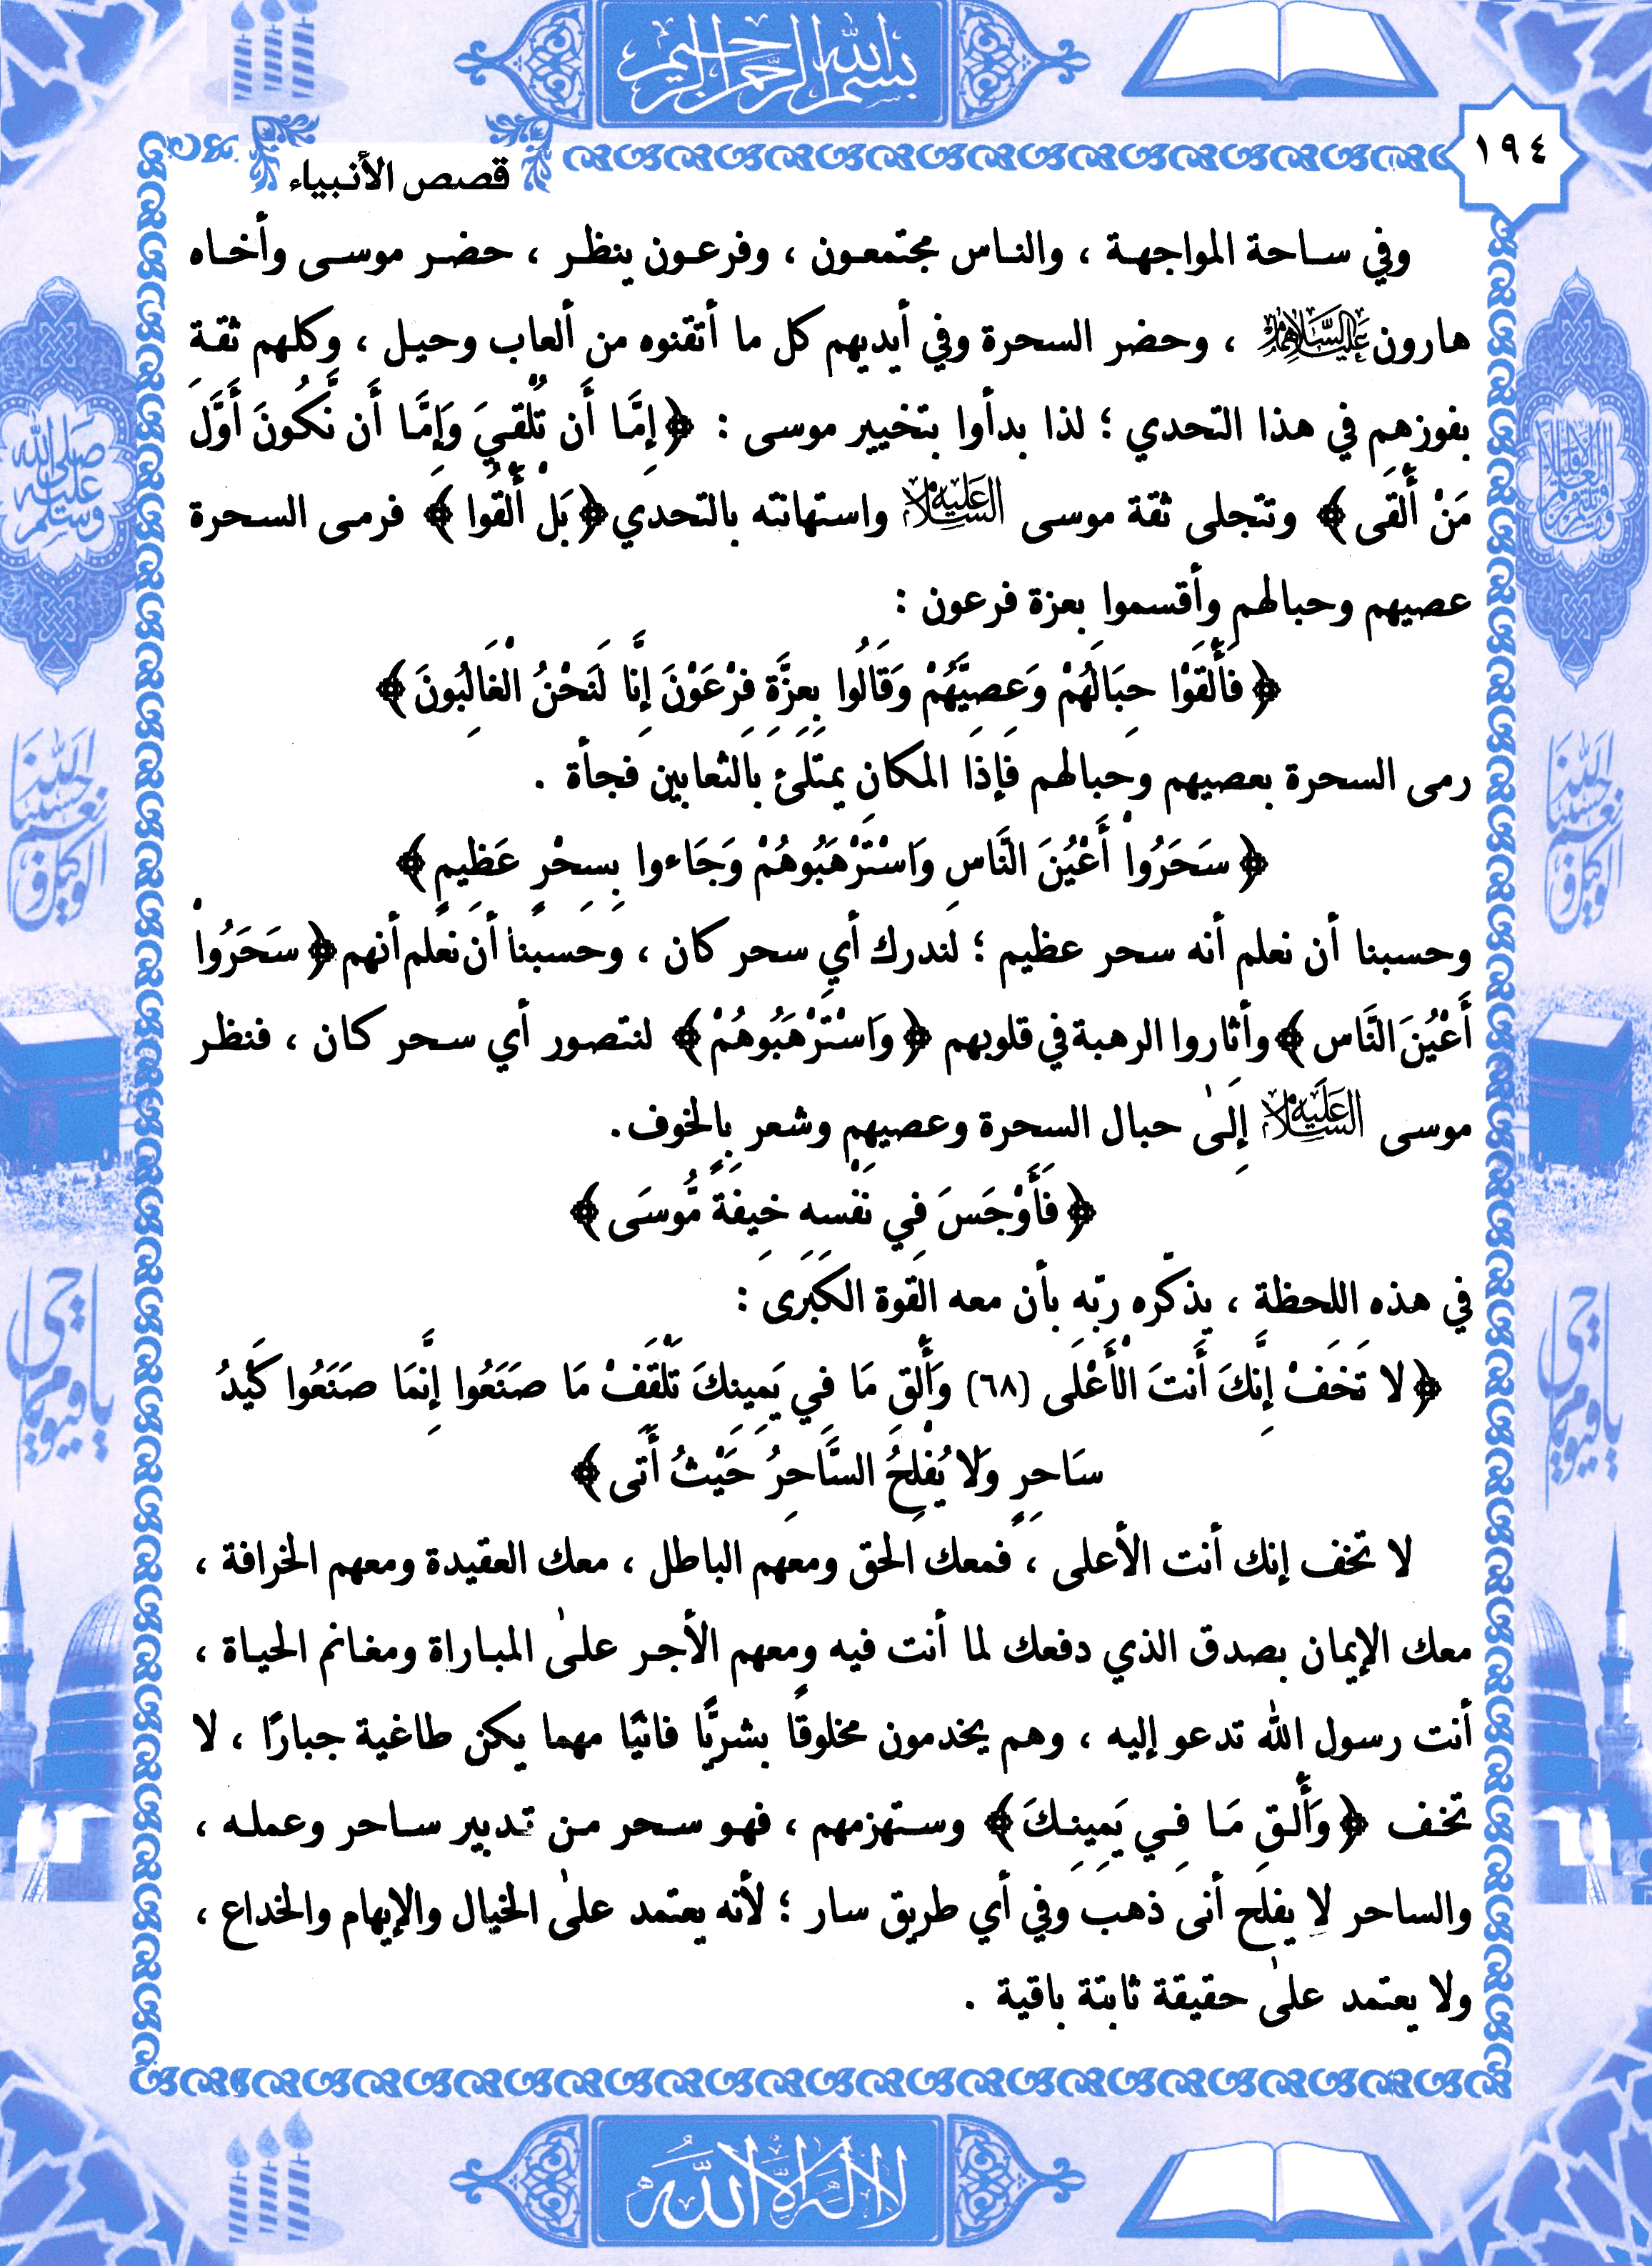 بسم الله الرحمن الرحيم
١٩٤
قصص الأنبياء
وفي ساحة المواجهة ، والناس مجتمعون ، وفرعون ينظر ، حضر موسى وأخاه
هارون عليهما السلام ، وحضر السحرة وفي أيديهم كل ما أتقنوه من ألعاب وحيل ، وكلهم ثقة
بفوزهم في هذا التحدي ؛ لذا بدأوا بتخيير موسى : ﴿إِمَّا أَن تُلْقِيَ وَإِمَّا أَن نَّكُونَ أَوَّلَ
مَنْ أَلْقَى﴾ وتتجلى ثقة موسى عليه السلام واستهانته بالتحدي ﴿بَلْ أَلْقُوا﴾ فرمى السحرة
عصيهم وحبالهم وأقسموا بعزة فرعون :
﴿فَأَلْقَوْا حِبَالَهُمْ وَعِصِيَّهُمْ وَقَالُوا بِعِزَّةِ فِرْعَوْنَ إِنَّا لَنَحْنُ الْغَالِبُونَ﴾
رمى السحرة بعصيهم وحبالهم فإذا المكان يمتلئ بالثعابين فجأة .
﴿سَحَرُواْ أَعْيُنَ النَّاسِ وَاسْتَرْهَبُوهُمْ وَجَاءوا بِسِحْرٍ عَظِيمٍ﴾
وحسبنا أن نعلم أنه سحر عظيم ؛ لندرك أي سحر كان ، وحسبنا أن نعلم أنهم ﴿سَحَرُواْ
أَعْيُنَ النَّاسِ﴾ وأثاروا الرهبة في قلوبهم ﴿وَاسْتَرْهَبُوهُمْ﴾ لنتصور أي سحر كان ، فنظر
موسى عليه السلام إلىٰ حبال السحرة وعصيهم وشعر بالخوف.
﴿فَأَوْجَسَ فِي نَفْسِهِ خِيفَةً مُّوسَى﴾
في هذه اللحظة ، يذكّره ربّه بأن معه القوة الكبرى :
﴿لا تَخَفْ إِنَّكَ أَنتَ الْأَعْلَى (٦٨) وَأَلْقِ مَا فِي يَمِينِكَ تَلْقَفْ مَا صَنَعُوا إِنَّمَا صَنَعُوا كَيْدُ
سَاحِرٍ وَلا يُفْلِحُ السَّاحِرُ حَيْثُ أَتَى﴾
لا تخف إنك أنت الأعلى ، فمعك الحق ومعهم الباطل ، معك العقيدة ومعهم الخرافة ،
معك الإيمان بصدق الذي دفعك لما أنت فيه ومعهم الأجر علىٰ المباراة ومغانم الحياة ،
أنت رسول الله تدعو إليه ، وهم يخدمون مخلوقًا بشريًّا فانيًا مهما يكن طاغية جبارًا ، لا
تخف ﴿وَأَلْقِ مَا فِي يَمِينِكَ﴾ وستهزمهم ، فهو سحر من تدبير ساحر وعمله ،
والساحر لا يفلح أنى ذهب وفي أي طريق سار ؛ لأنه يعتمد علىٰ الخيال والإيهام والخداع ،
ولا يعتمد علىٰ حقيقة ثابتة باقية .
لا إله إلا الله